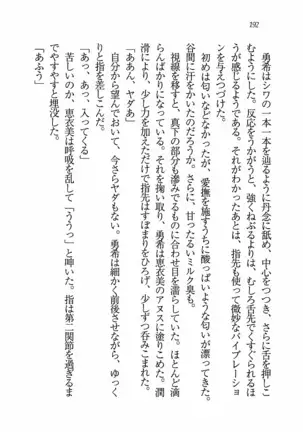 192
勇希はシワの一本一本を辿るように丹念に舐め、中心をつつき、さらに舌を押しこ
むようにした。反応をうかがうと、強くねぶるよりは、むしろ舌先でくすぐられるほ
うが感じるようである。それがわかったあとは、指先も使って微妙なバイブレーショ
ンを与えつづけた。
初めは匂いなどなかったが、愛撫を施すうちに酸っぱいような匂いが漂ってきた。
谷間に汗をかいたのだろうか。さらに、甘ったるいミルク臭も。
視線を移すと、真下の部分も滲みでるものに合わせ目を濡らしていた。ほとんど滴
らんばかりになっていたそれを掬い取り、勇希は恵衣美のアヌスに塗りこめた。潤
滑により、少し力を加えただけで指先はすぼまりをひろげ、少しずつ呑みこまれた。
「ああん、ヤダぁ」
自分から望んでおいて、今さらヤダもない。勇希は細かく前後させながら、ゆっく
りと指を差しこんだ。
「あっ、あっ、入ってくるう」
苦しいのか、恵衣美は呼吸を乱して「ううっ」と呻いた。指は第二関節を過ぎるま
でやすやすと埋没した。
「あふう」